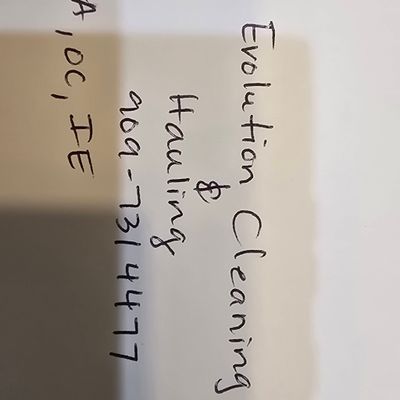 Evolution Cleaning
&
Hauling
909-7314477
A, OC, IE